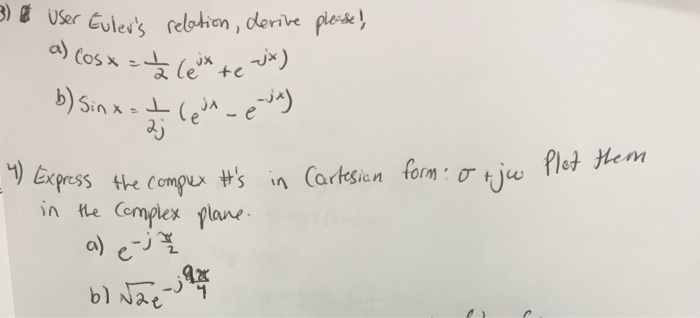 3) User Euler's relation, derive please!
a) Cos x = 1/2 (e^jx + e^-jx)
b) Sin x = 1/2j (e^jx - e^-jx)
4) Express the compux #'s in Cartesian form: σ + jω Plot them
in the Complex plane.
a) e^-j π/2
b) √2 e^-j 9π/4